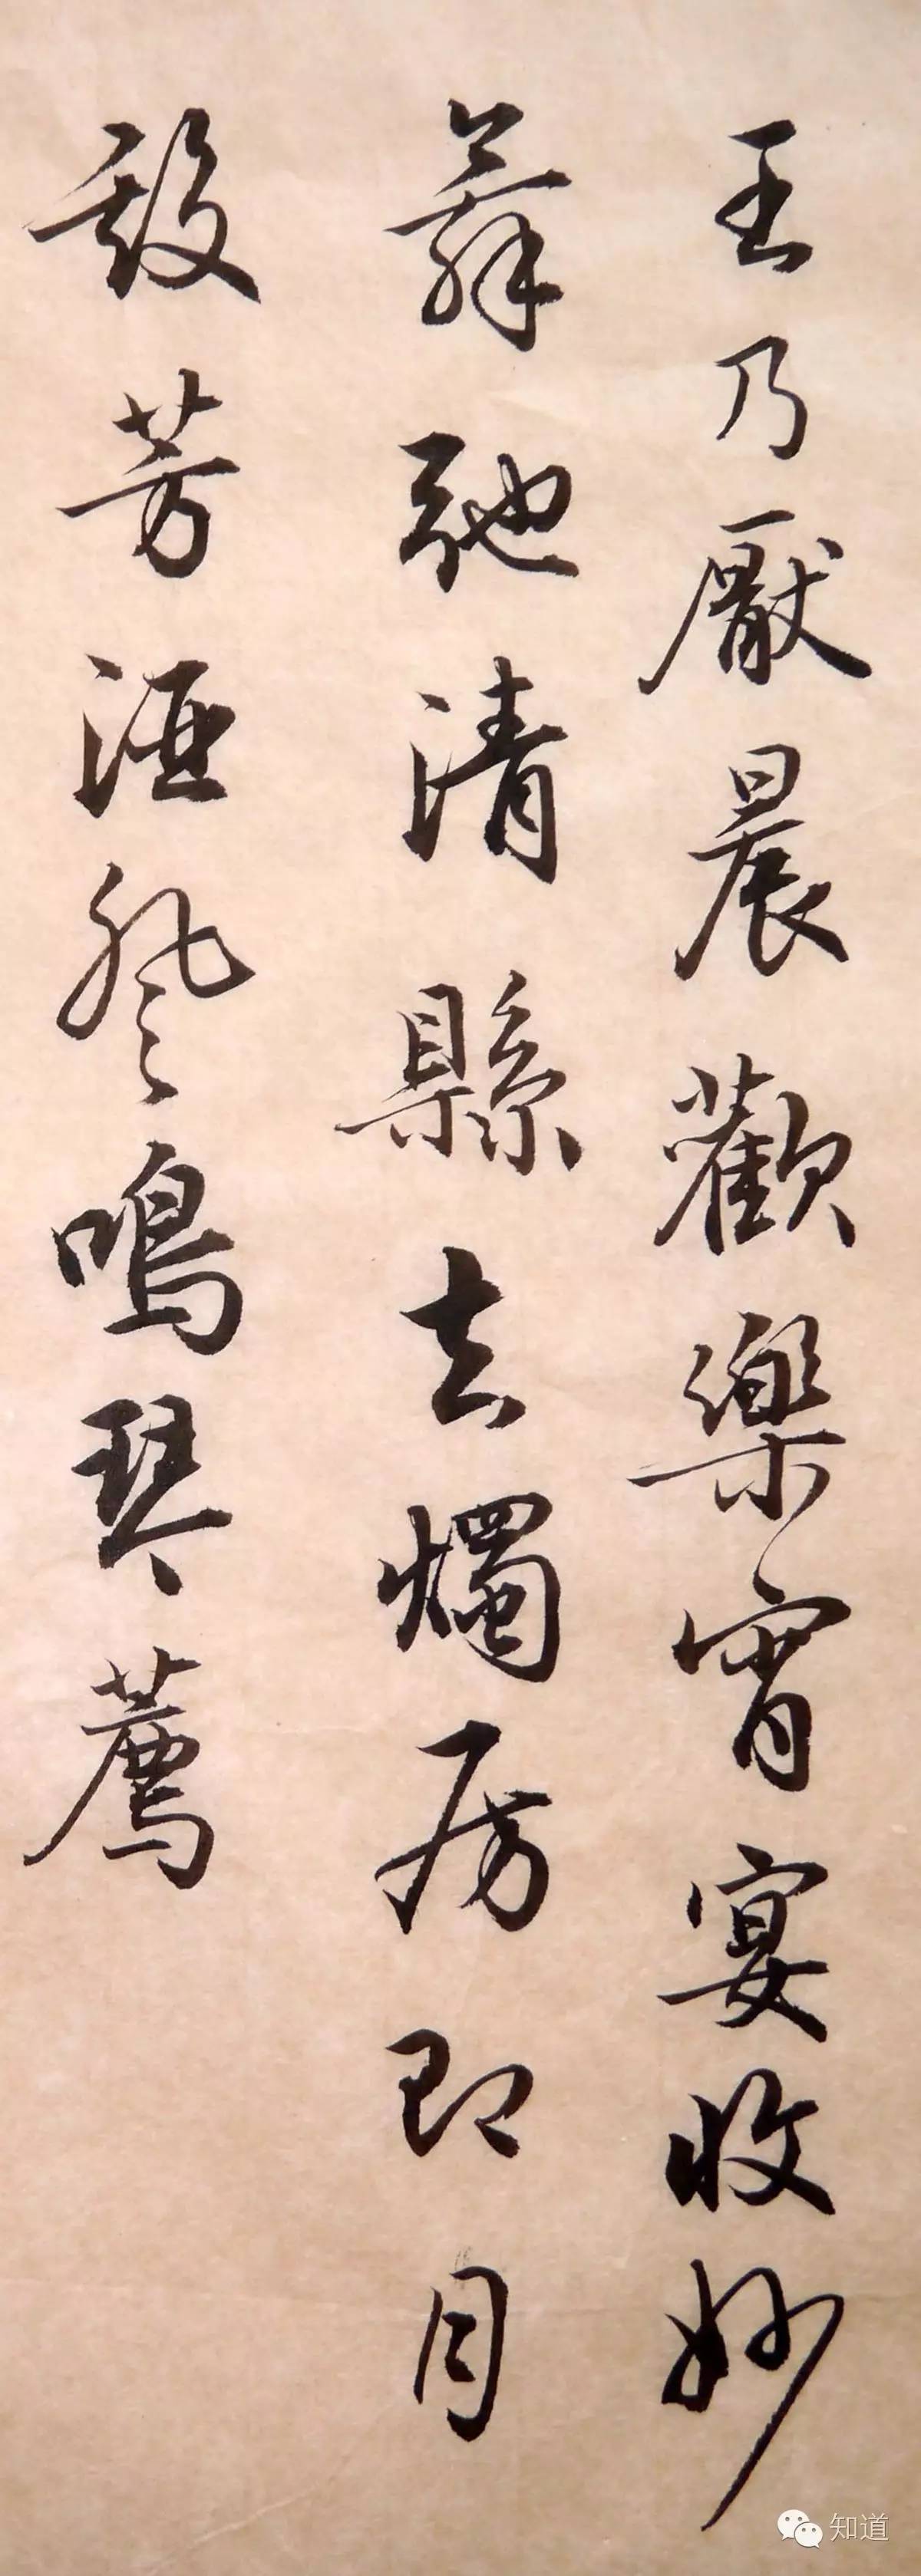 王乃厭晨歡樂宵宴收妙
舞弛清縣去燭房即月
殿芳酒登鳴琴薦
知道